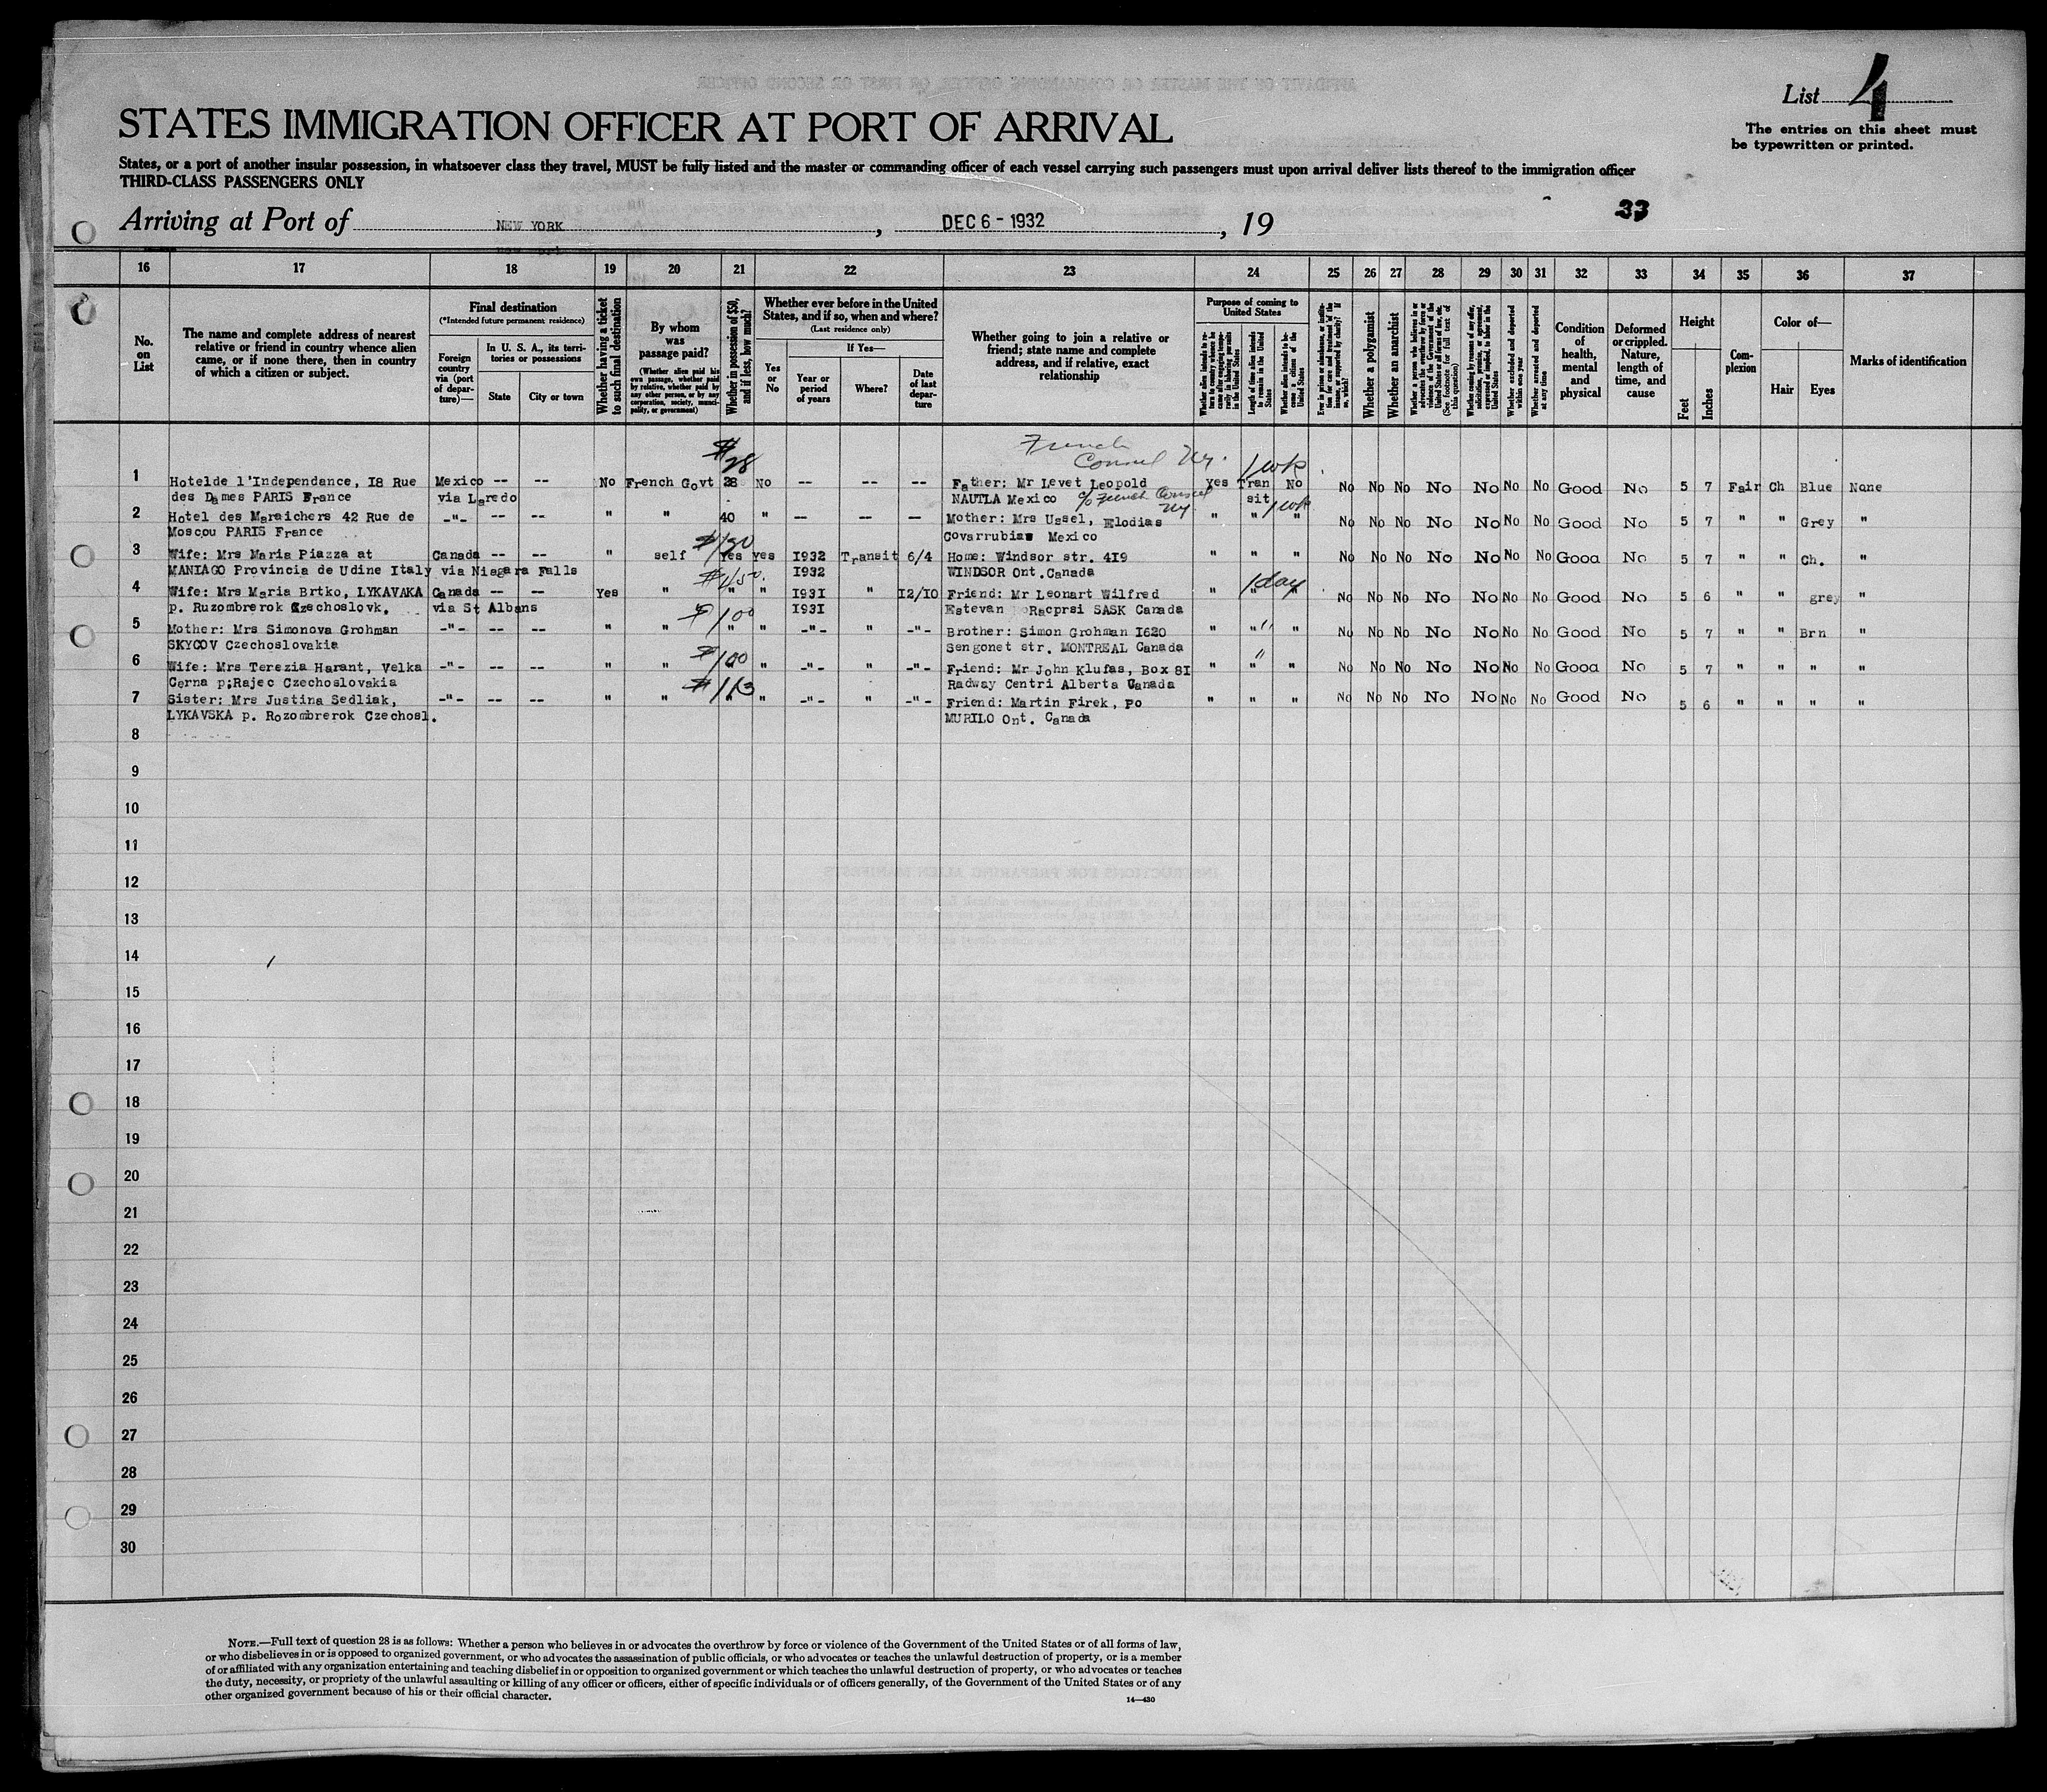 List 4
The entries on this sheet must
be typewritten or printed.
STATES IMMIGRATION OFFICER AT PORT OF ARRIVAL
States, or a port of another insular possession, in whatsoever class they travel, MUST be fully listed and the master or commanding officer of each vessel carrying such passengers must upon arrival deliver lists thereof to the immigration officer
THIRD-CLASS PASSENGERS ONLY
Arriving at Port of NEW YORK, DEC 6 - 1932, 19 33
16 17 18 19 20 21 22 23 24 25 26 27 28 29 30 31 32 33 34 35 36 37
No. on List
The name and complete address of nearest relative or friend in country whence alien came, or if none there, then in country of which a citizen or subject.
Final destination
(*Intended future permanent residence)
Foreign country via (port of departure)—
In U. S. A., its territories or possessions
State
City or town
Whether having a ticket to such final destination
By whom was passage paid?
(Whether alien paid his own passage, whether paid by relative, whether paid by any other person, or by any corporation, society, municipality, or government)
Whether in possession of $50, and if less, how much?
Whether ever before in the United States, and if so, when and where?
(Last residence only)
Yes or No
If Yes—
Year or period of years
Where?
Date of last departure
Whether going to join a relative or friend; state name and complete address, and if relative, exact relationship
Purpose of coming to United States
Length of time alien intends to remain in the United States
Whether alien intends to become a citizen of the United States
Whether a polygamist
Whether an anarchist
(See footnote for full text of this question)
Whether excluded and deported within one year
Whether arrested and deported at any time
Condition of health, mental and physical
Deformed or crippled. Nature, length of time, and cause
Height
Feet
Inches
Complexion
Color of—
Hair
Eyes
Marks of identification
French
Consul Ny.
$28 1 wk
1 Hotelde l'Independance, I8 Rue Mexico -- -- No French Govt 28 No -- -- -- Father: Mr Levet Leopold yes Tran No No No No No No No No Good No 5 7 Fair Ch Blue None
des Dames PARIS France via Laredo NAUTLA Mexico c/o French Consul Ny sit 1 wk
2 Hotel des Maraichers 42 Rue de -"- -- -- " " 40 " -- -- -- Mother: Mrs Ussel, Elodias " " " No No No No No No No Good No 5 7 " " Grey "
Moscou PARIS France Covarrubias Mexico
3 Wife: Mrs Maria Piazza at Canada -- -- " self Yes yes I932 Transit 6/4 Home: Windsor str. 4I9 " " " No No No No No No No Good No 5 7 " " Ch. "
MANIAGO Provincia de Udine Italy via Niagara Falls I932 WINDSOR Ont. Canada
1 day
4 Wife: Mrs Maria Brtko, LYKAVAKA Canada -- -- Yes " " " I93I " I2/I0 Friend: Mr Leonart Wilfred " " " No No No No No No No Good No 5 6 " " grey "
p. Ruzombrerok Czechoslovk. via St Albans $100 I93I Estevan Racprsi SASK Canada
5 Mother: Mrs Simonova Grohman -"- -- -- " " " " -"- " -"- Brother: Simon Grohman I620 " " " No No No No No No No Good No 5 7 " " Brn "
SKYCOV Czechoslovakia $100 Sengonet str. MONTREAL Canada
6 Wife: Mrs Terezia Harant, Velka -"- -- -- " " " " -"- " -"- Friend: Mr John Klufas, Box 8I " " " No No No No No No No Good No 5 7 " " " "
Cerna p;Rajec Czechoslovakia $113 Radway Centri Alberta Canada
7 Sister: Mrs Justina Sedliak, -"- -- -- " " " " -"- " -"- Friend: Martin Firek, Po " " " No No No No No No No Good No 5 6 " " " "
LYKAVSKA p. Rozombrerok Czechosl. MURILO Ont. Canada
8
9
10
11
12
13
14
15
16
17
18
19
20
21
22
23
24
25
26
27
28
29
30
NOTE.—Full text of question 28 is as follows: Whether a person who believes in or advocates the overthrow by force or violence of the Government of the United States or of all forms of law,
or who disbelieves in or is opposed to organized government, or who advocates the assassination of public officials, or who advocates or teaches the unlawful destruction of property, or is a member
of or affiliated with any organization entertaining and teaching disbelief in or opposition to organized government or which teaches the unlawful destruction of property, or who advocates or teaches
the duty, necessity, or propriety of the unlawful assaulting or killing of any officer or officers, either of specific individuals or of officers generally, of the Government of the United States or of any
other organized government because of his or their official character.
14—430